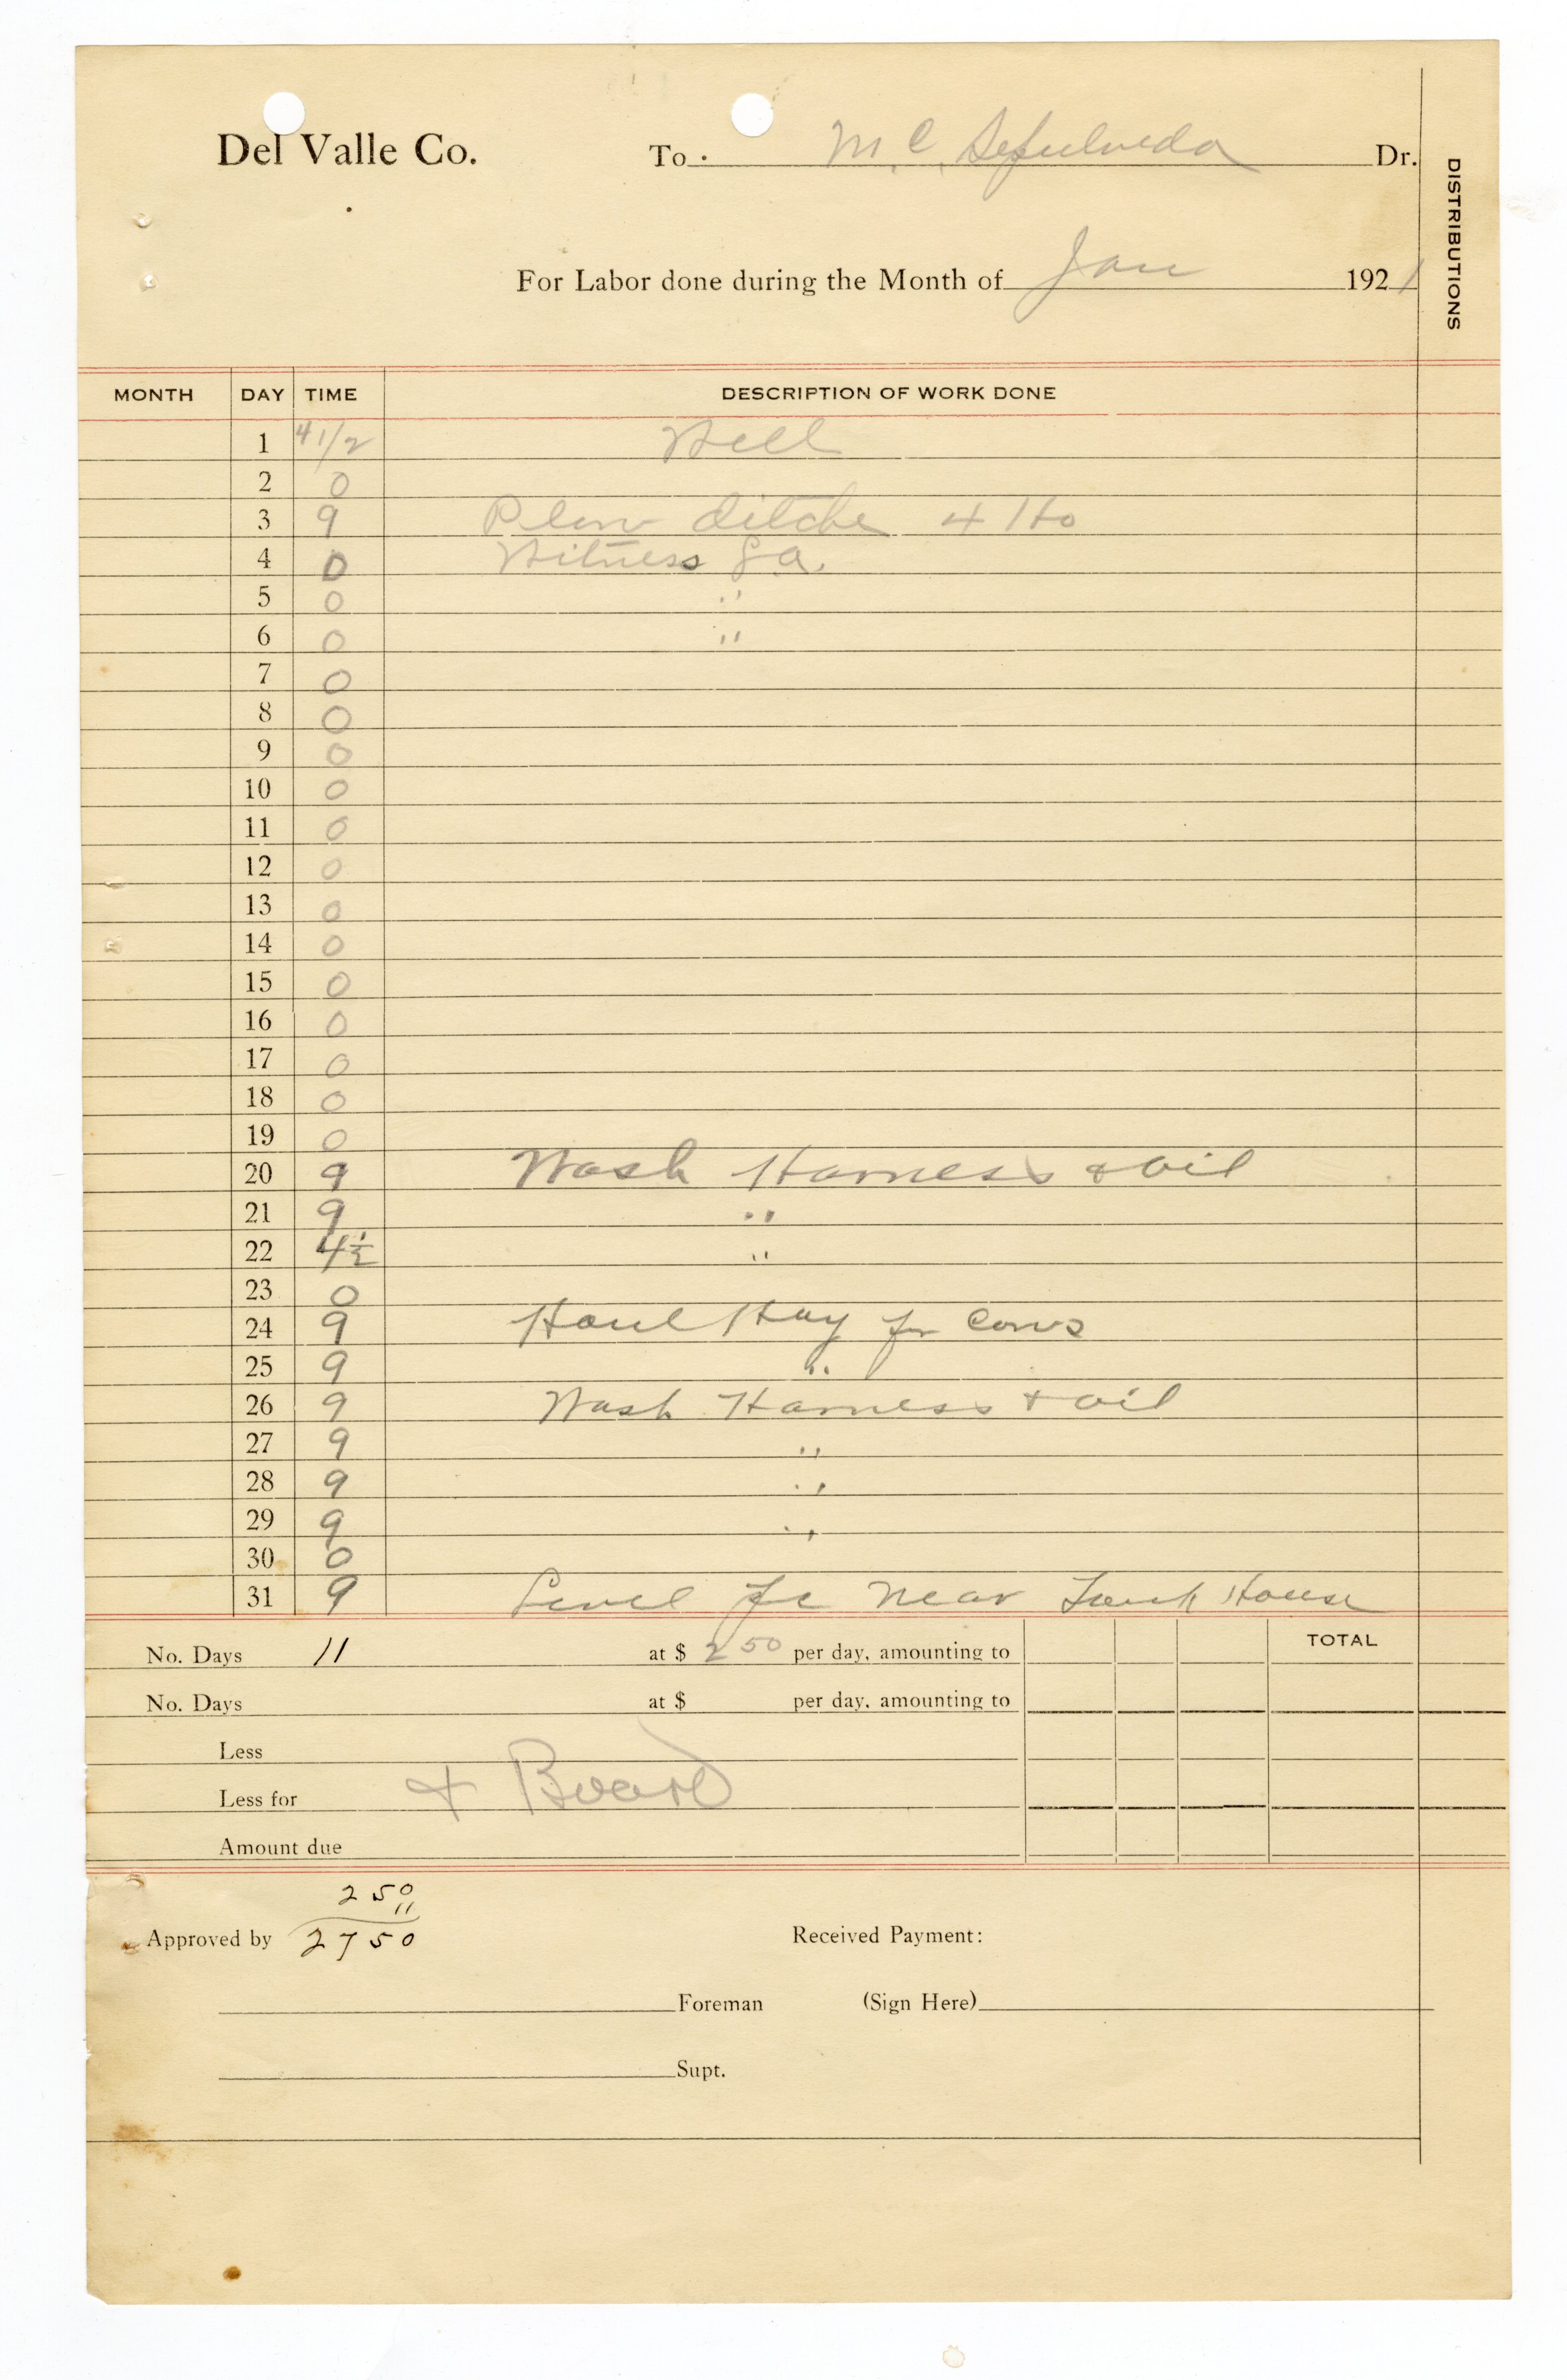 Del Valle Co. To M. C. Sepulveda Dr.
DISTRIBUTIONS
For Labor done during the Month of Jan 1921
MONTH DAY TIME DESCRIPTION OF WORK DONE
1 4 1/2 Well
2 0
3 9 Plow ditche 4 Ho
4 0 Witness
5 0 "
6 0 "
7 0
8 0
9 0
10 0
11 0
12 0
13 0
14 0
15 0
16 0
17 0
18 0
19 0
20 9 Wash Harness & oil
21 9 "
22 4 1/2 "
23 0
24 9 Haul Hay for Cows
25 9 "
26 9 Wash Harness + oil
27 9 "
28 9 "
29 9 "
30 0
31 9 Level Near Tank House
No. Days 11 at $ 2 50 per day, amounting to TOTAL
No. Days at $ per day, amounting to
Less
Less for + Board
Amount due
2 50
11
Approved by 27 50 Received Payment:
Foreman (Sign Here)
Supt.